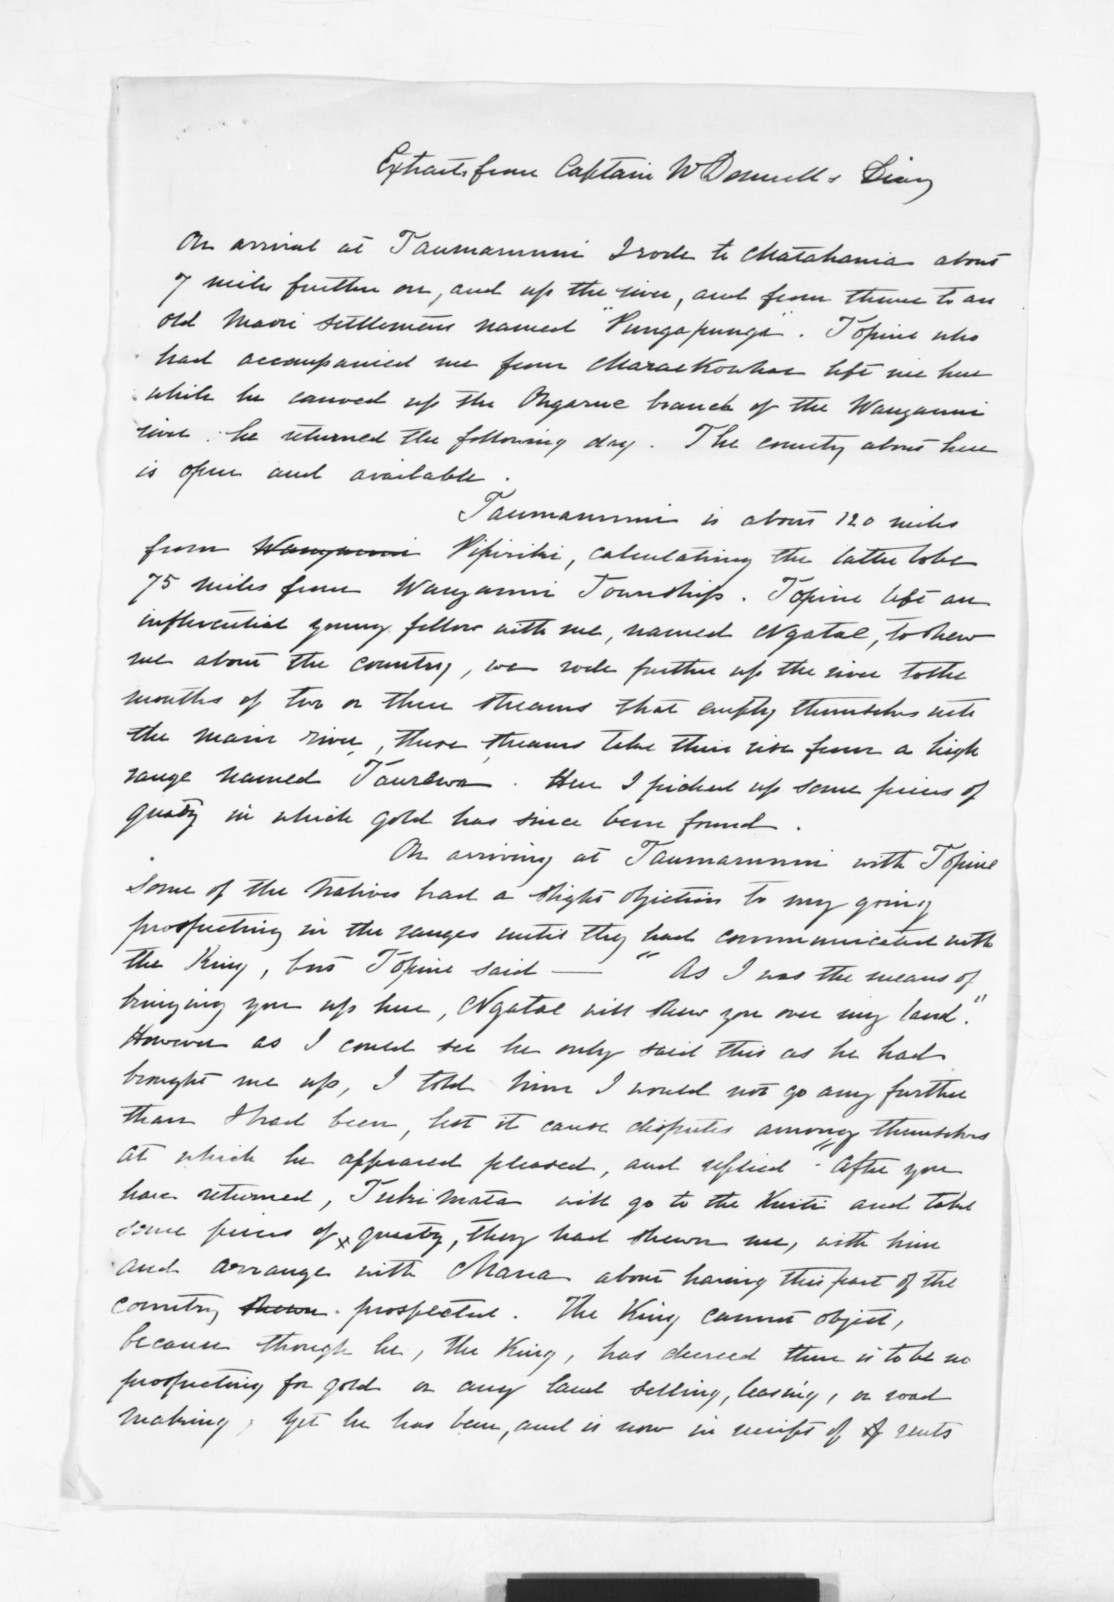 Extracts from Captain McDonnell's Diary
On arrival at Taumarunui I rode to Matahaura about
7 miles further on, and up the river, and from thence to an
old Maori settlement named "Pungapunga". Topine who
had accompanied me from Maraekowhai left me here
while he canoed up the Ongarue branch of the Wanganui
river. he returned the following day. The country about here
is open and available.
Taumarunui is about 120 miles
from Wanganui Pipiriki, calculating the latter to be
75 miles from Wanganui Township. Topine left an
influential young fellow with me, named Ngatae, to shew
me about the country, we rode further up the river to the
mouths of two or three streams that empty themselves into
the main river, these streams take their rise from a high
range named "Taurewa". Here I picked up some pieces of
quartz in which gold has since been found.
On arriving at Taumarunui with Topine
some of the Natives had a slight objection to my going
prospecting in the ranges until they had communicated with
the King, but Topine said — "As I was the means of
bringing you up here, Ngatae will shew you over my land."
However as I could see he only said this as he had
brought me up, I told him I would not go any further
than I had been, lest it cause disputes among themselves
at which he appeared pleased, and replied "After you
have returned, Tuki Mata will go to the Kuiti and take
some pieces of x quartz, they had shewn me, with him
and arrange with Manga about having this part of the
country shewn prospected. The King cannot object,
because though he, the King, has decreed there is to be no
prospecting for gold or any land selling, leasing, or road
making, yet he has been, and is now in receipt of of rents